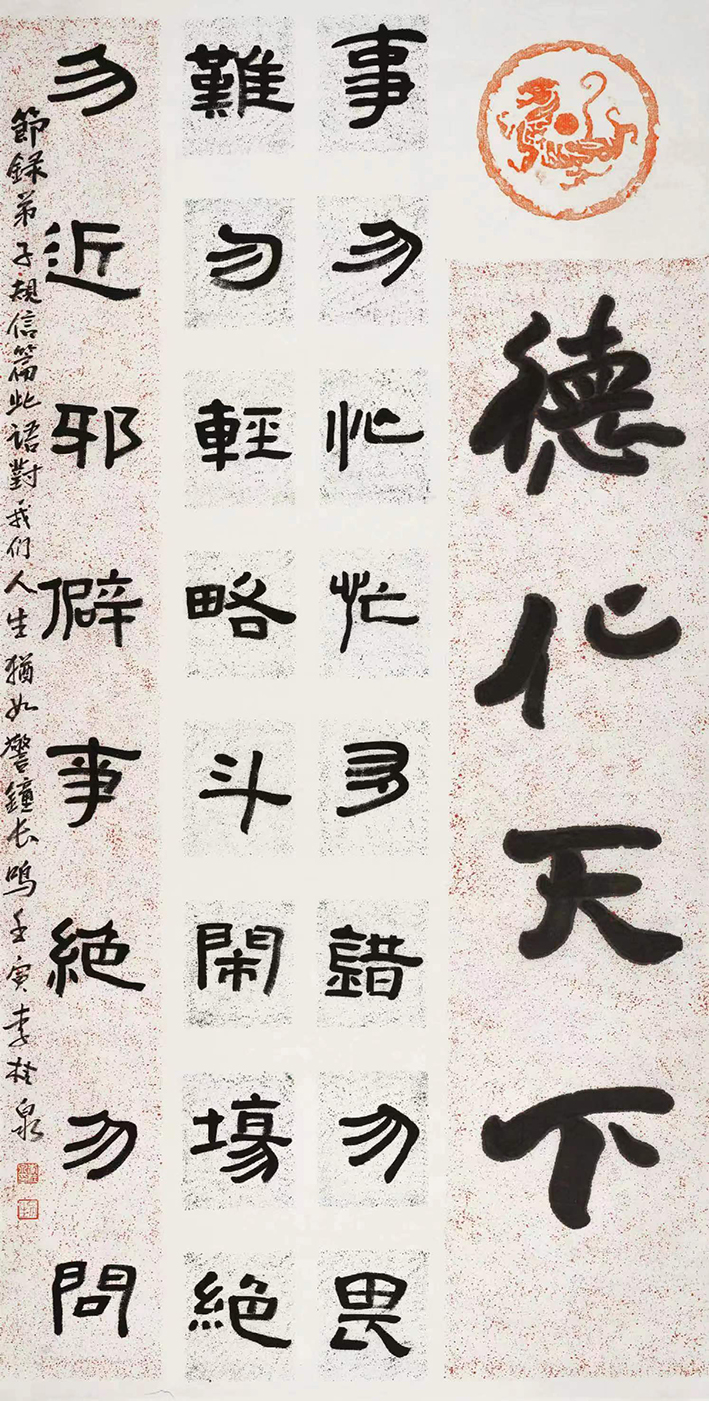 德化天下
事勿忙忙多錯勿畏
難勿輕略斗閙塲絕
勿近邪僻事絕勿問
節録弟子規信篇此语對我们人生猶如警鐘长鸣壬寅李泉